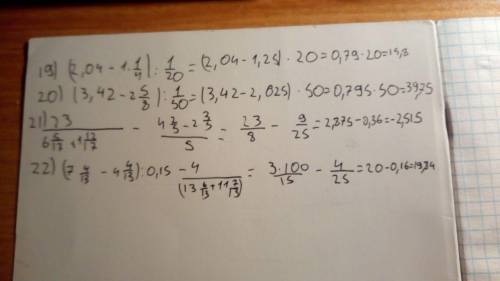 19) (2,04 - 1 · 1/4) : 1/20 = (2,04 - 1,25) · 20 = 0,79 · 20 = 15,8
20) (3,42 - 2 5/8) : 1/50 = (3,42 - 2,625) · 50 = 0,795 · 50 = 39,75
21) 23 / (6 5/17 + 1 12/17) - (4 2/5 - 2 3/5) / 5 = 23/8 - 9/25 = 2,875 - 0,36 = -2,515
22) (7 4/13 - 4 4/13) : 0,15 - 4 / (13 6/13 + 11 7/13) = 3·100/15 - 4/25 = 20 - 0,16 = 19,84